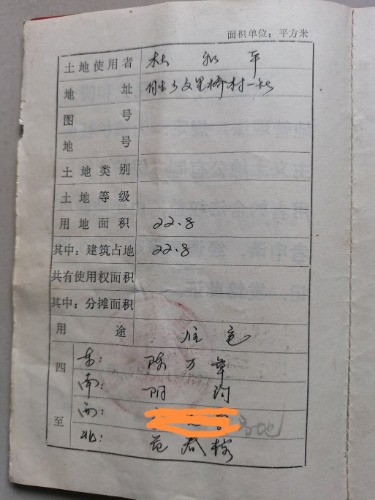 面积单位:平方米
土地使用者 杜 和 平
地址 村一社
图号
地号
土地类别
土地等级
用地面积 22.8
其中:建筑占地 22.8
共有使用权面积
其中:分摊面积
用途 住宅
四至
东: 陈万章
南: 阴沟
西: 地
北: 范